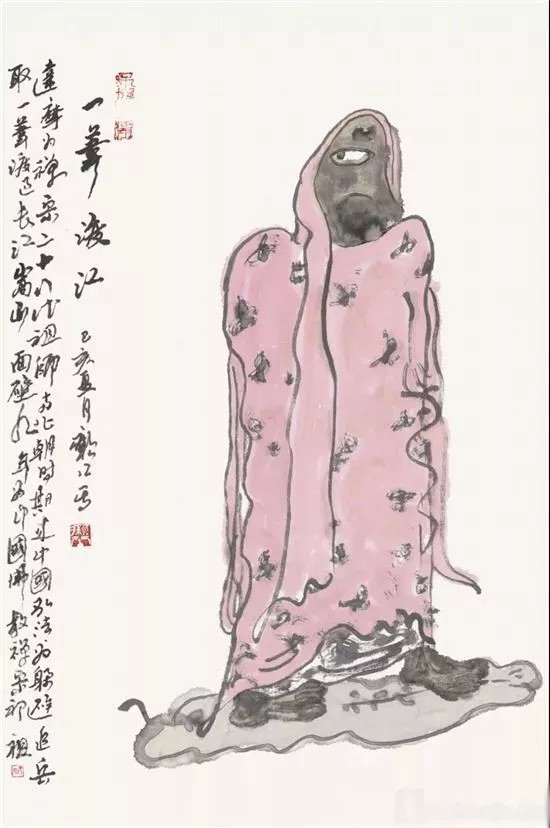 一葦渡江 己亥夏月 江写
達摩为禅宗二十八代祖師南北朝时期来中國弘法为躲避追兵
取一葦渡过长江嵩山面壁九年为中國佛教禅宗初祖